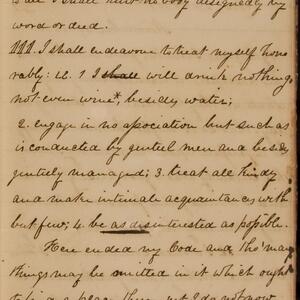 to all I shall hurt no body designedly by
word or deed.
III. I shall endeavour to treat myself hono
rably: i.e. 1 I shall will drink nothing,
not even wine*, besides water;
2. engage in no association but such as
is conducted by genteel men and besides
genteely managed; 3. treat all kindly
and make intimate acquaintances with
but few; 4. be as disinterested as possible.
Here ended my Code and tho' many
things may be omitted in it which ought